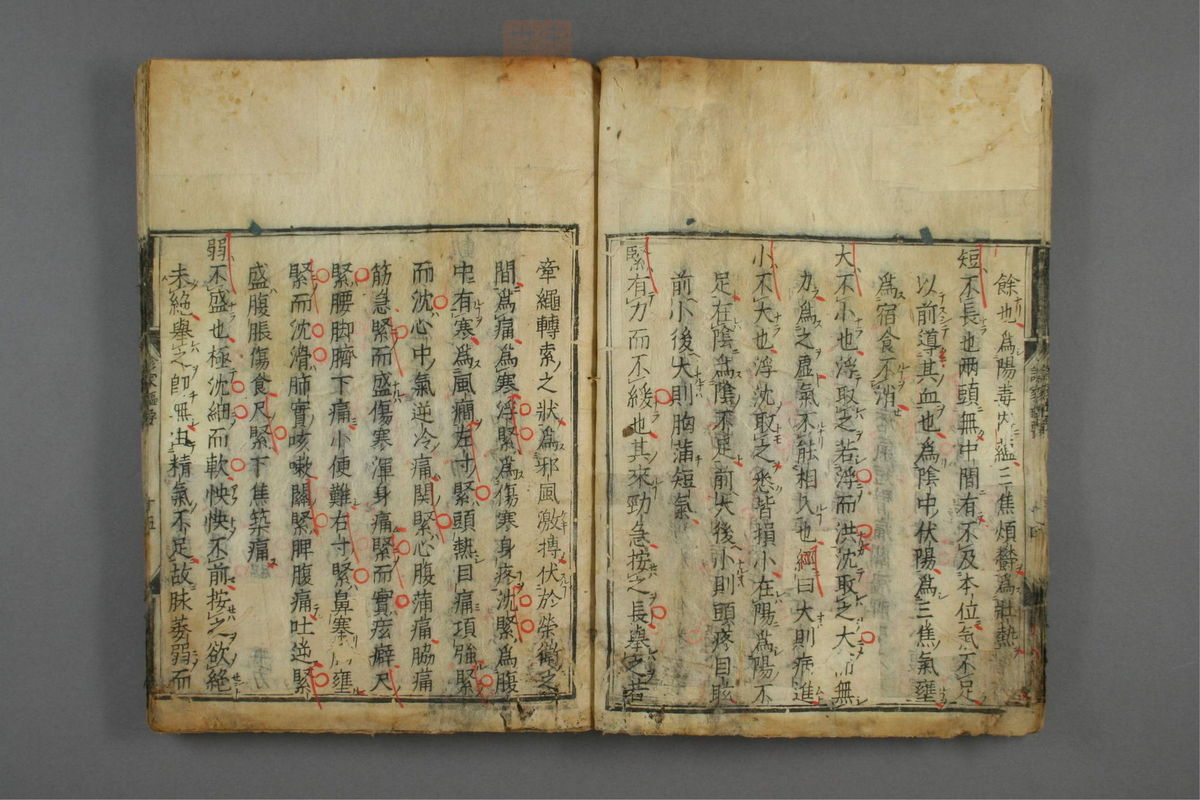 餘也爲陽毒內蘊三焦煩鬱爲壯熱
短不長也兩頭無中間有不及本位氣不足
以前導其血也爲陰中伏陽爲三焦氣壅
爲宿食不消
大不小也浮取之若浮而洪沈取之大而無
力爲之虛氣不能相入也經曰大則病進
小不大也浮沈取之悉皆損小在陽爲陽不
足在陰爲陰不足前大後小則頭疼目眩
前小後大則胸滿短氣
緊有力而不緩也其來勁急按之長舉之若
牽繩轉索之狀爲邪風激搏伏於榮衛之
間爲痛爲寒浮緊爲傷寒身疼沈緊爲腹
中有寒爲風癎左寸緊頭熱目痛項強緊
而沈心中氣逆冷痛關緊心腹滿痛脇痛
筋急緊而盛傷寒渾身痛緊而實痃癖尺
緊腰脚臍下痛小便難右寸緊鼻塞 壅
緊而沈滑肺實咳嗽關緊脾腹痛吐逆緊
盛腹脹傷食尺緊下焦築痛
弱不盛也極沈細而軟怏怏不前按之欲絕
未絕舉之卽無由精氣不足故脉萎弱而